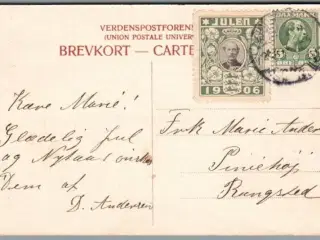 VERDENSPOSTFOREN
(UNION POSTALE UNIVER
BREVKORT — CARTE
JULEN
1906
Kære Marie!
Glædelig Jul
og Nytaar ønskes
Dem af
D. Andersen
Frk MarieAnder
Piniehøj
Rungsted